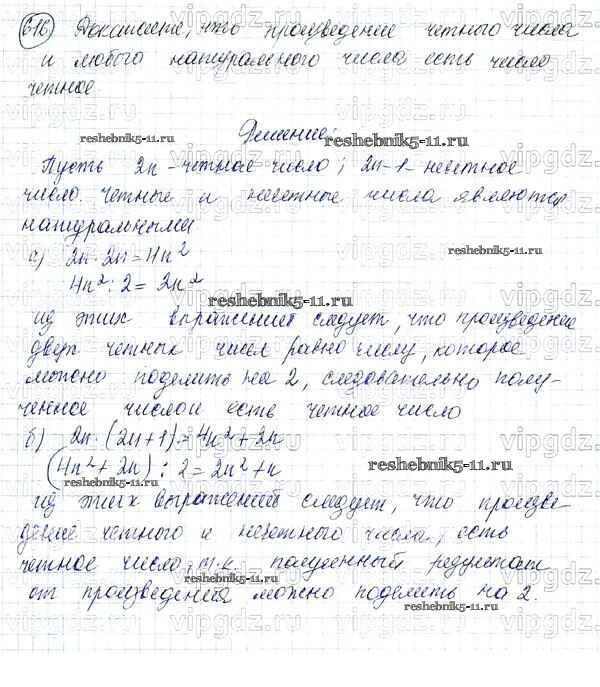 616 Докажите, что произведение четного числа
и любого натурального числа есть число
четное.
Решение:
reshebnik5-11.ru reshebnik5-11.ru
Пусть 2n - четное число; 2n-1 - нечетное
число. Четные и нечетные числа являются
натуральными
а) 2n · 2n = 4n²
reshebnik5-11.ru
4n² : 2 = 2n²
reshebnik5-11.ru
из этих выражений следует, что произведение
двух четных чисел равно числу, которое
можно поделить на 2, следовательно полу-
ченное числом есть четное число
б) 2n · (2n+1) = 4n² + 2n
(4n² + 2n) : 2 = 2n² + n
reshebnik5-11.ru
из этих выражений следует, что произве-
дение четного и нечетного числа, есть
четное число, т.к. полученный результат
reshebnik5-11.ru
от произведения можно поделить на 2.
reshebnik5-11.ru
vipgdz.